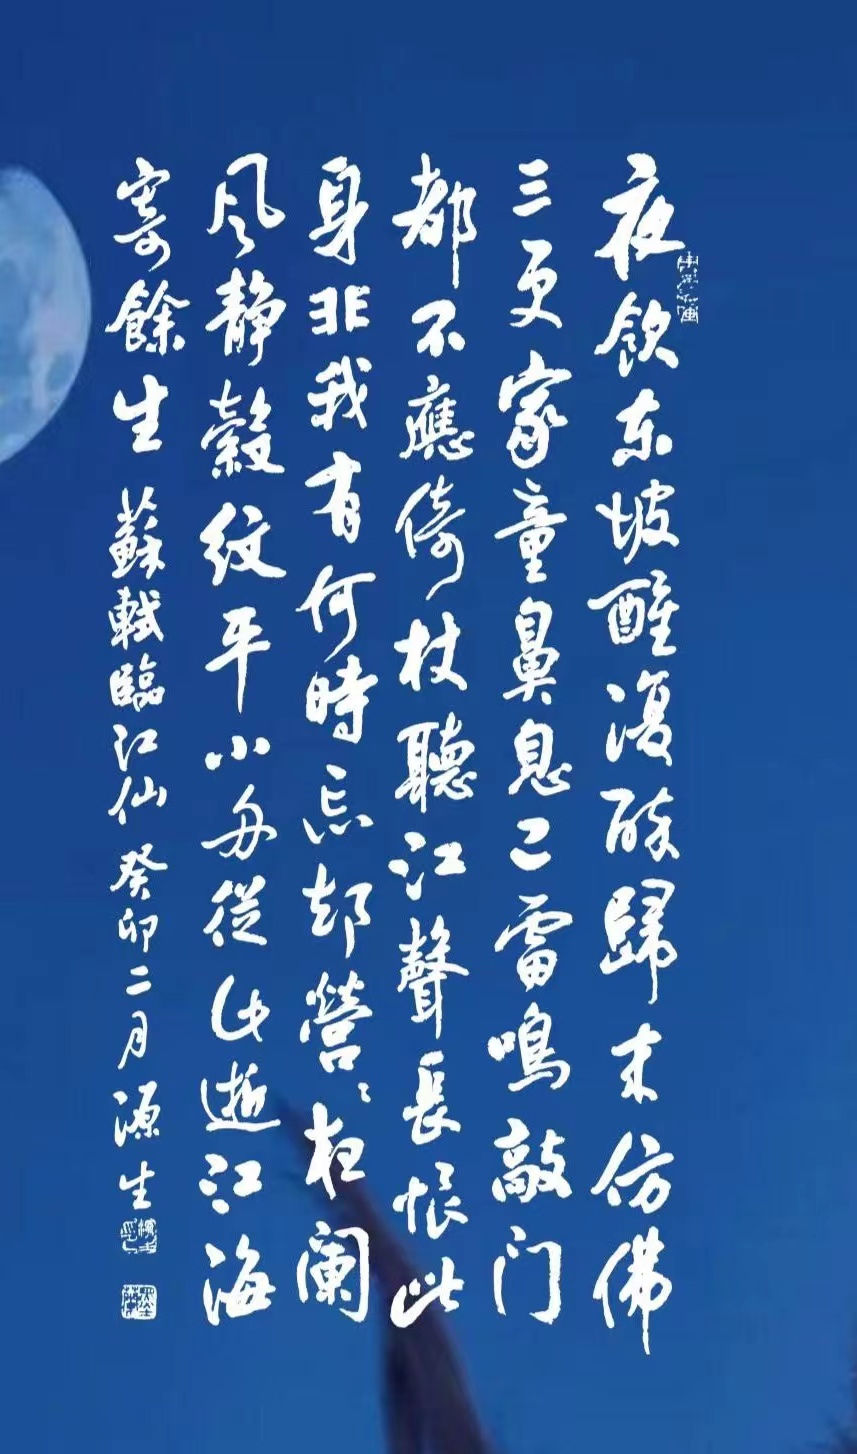 夜飲东坡醒復醉歸来仿佛
三更家童鼻息已雷鳴敲门
都不應倚杖聽江聲長恨此
身非我有何時忘却營〻夜阑
风静縠纹平小舟從此逝江海
寄餘生 蘇軾臨江仙 癸卯二月 源生